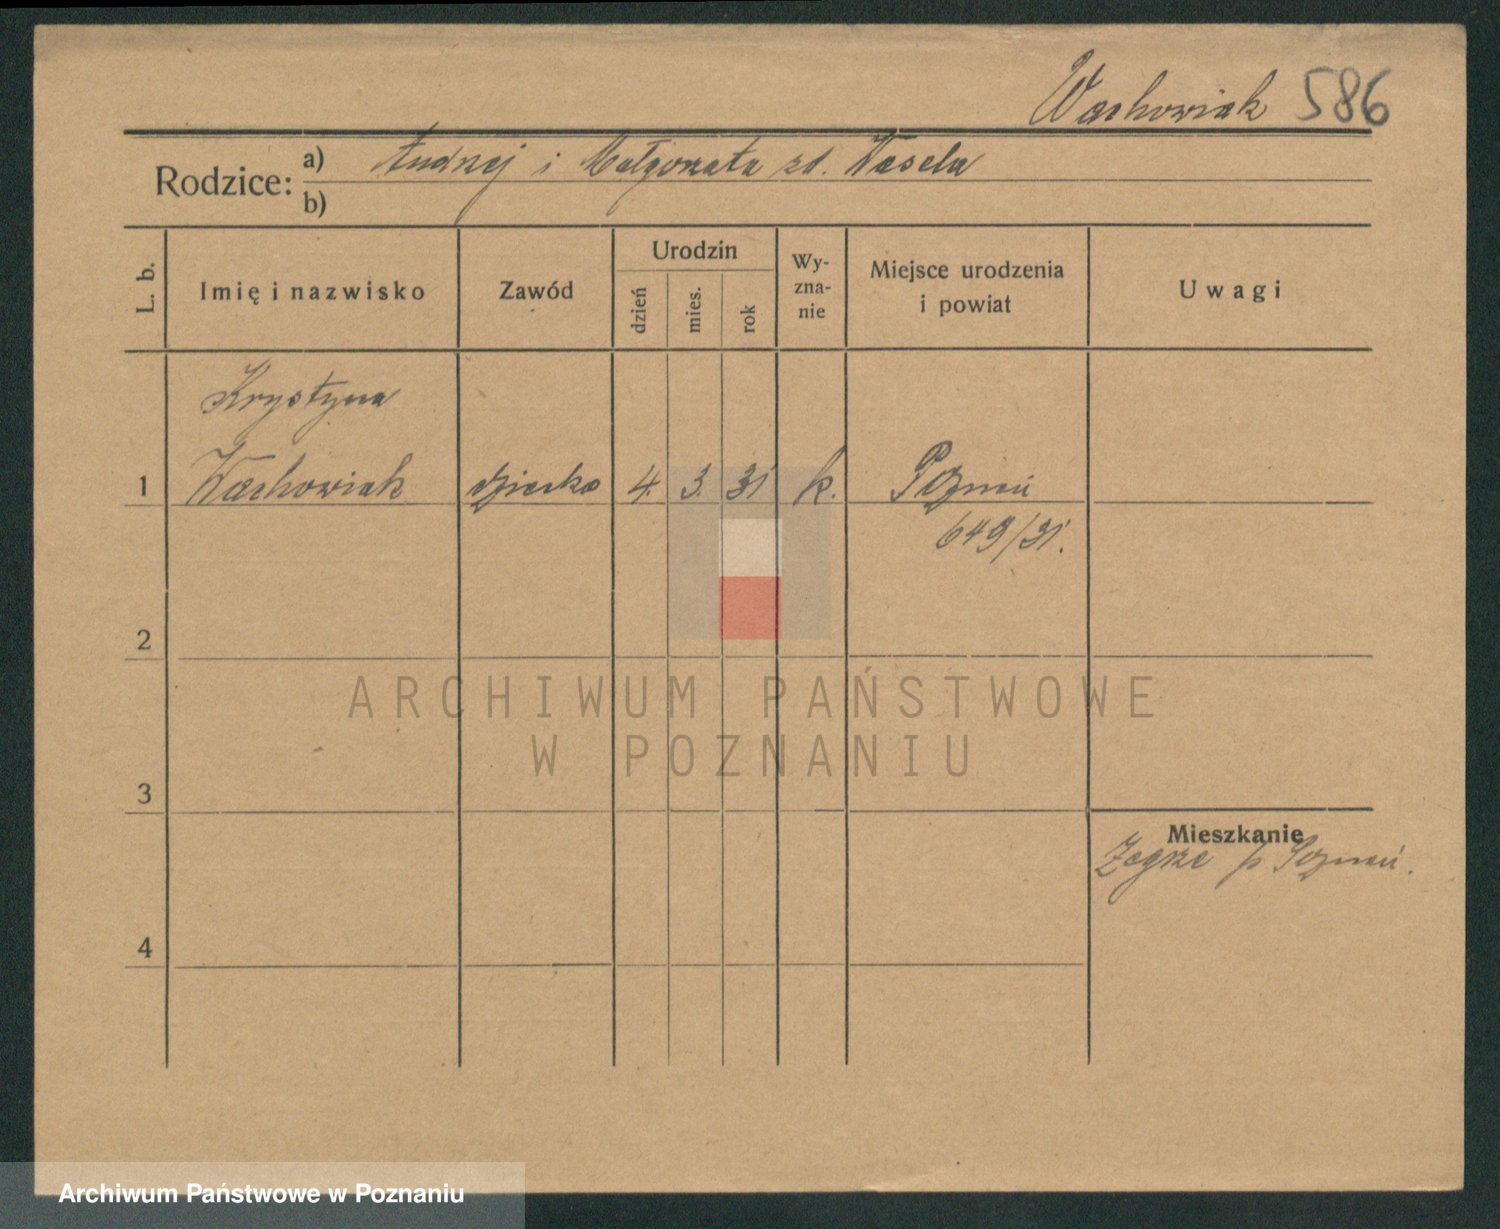 Wachowiak 586
Rodzice: a) Andrzej i Małgorzata zd. Wasela
b)
L. b.
Imię i nazwisko
Zawód
Urodzin
dzień
mies.
rok
Wy-
zna-
nie
Miejsce urodzenia
i powiat
Uwagi
Krystyna
1 Wachowiak dziecko 4. 3. 31 k. Poznań
649/31.
2
ARCHIWUM PAŃSTWOWE
W POZNANIU
3
Mieszkanie
Żegrze p Poznań.
4
Archiwum Państwowe w Poznaniu